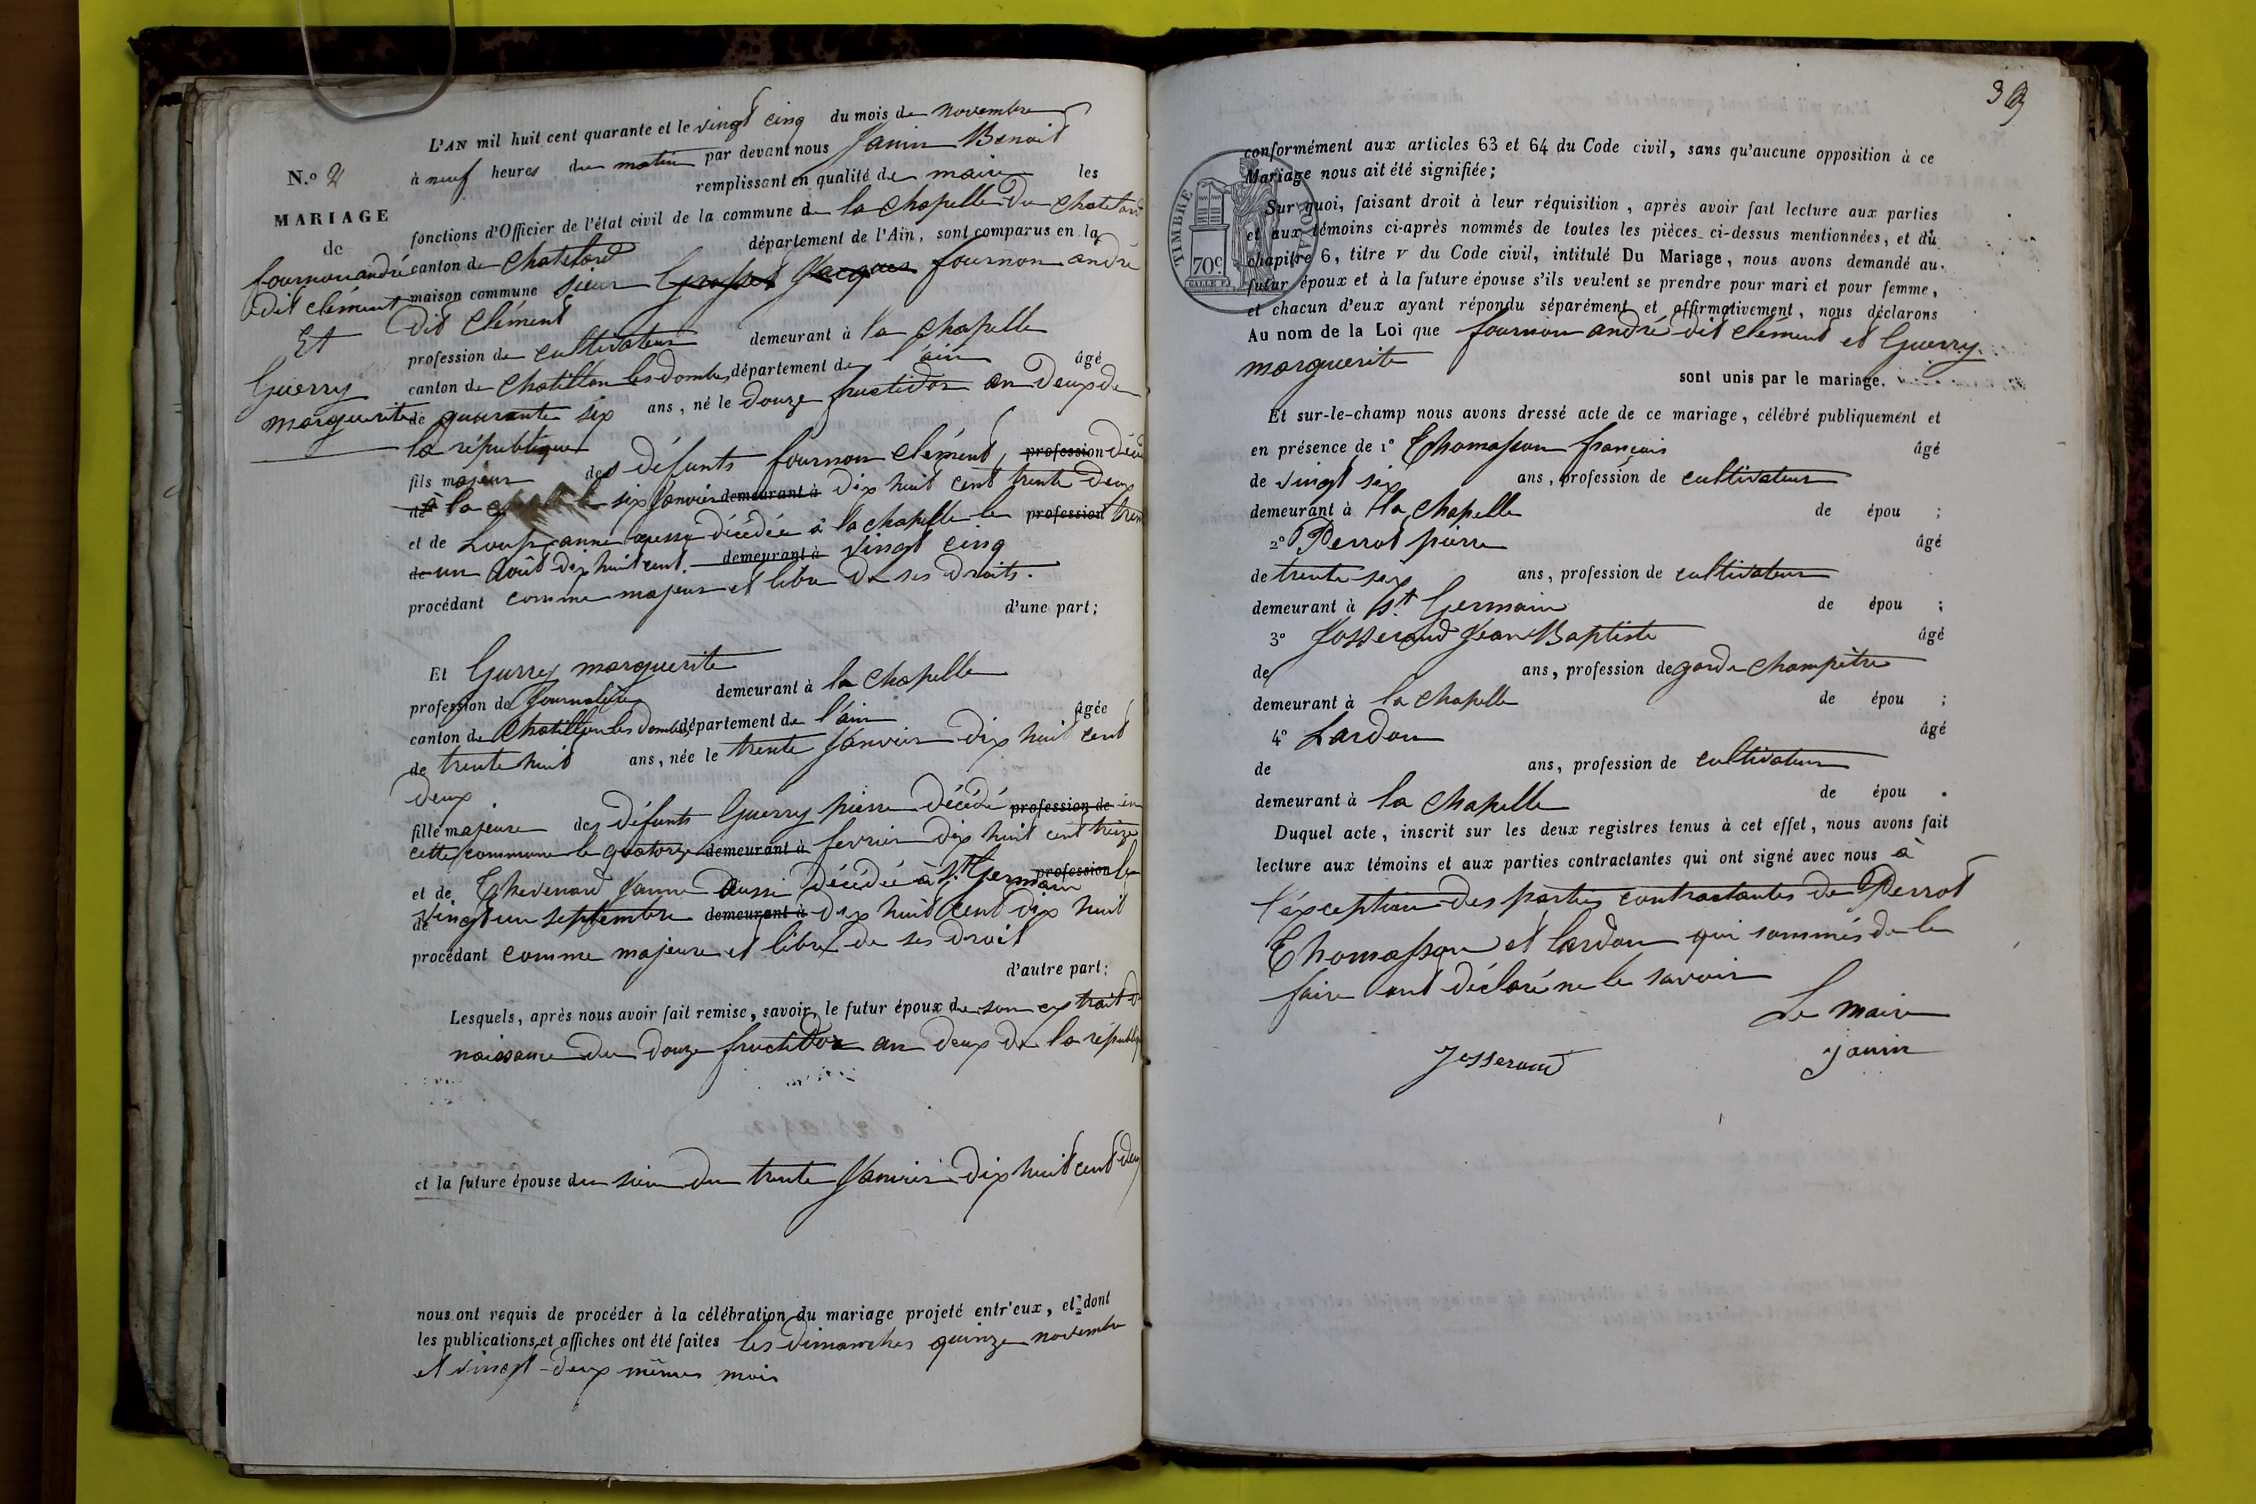 L'AN mil huit cent quarante et le vingt cinq du mois de novembre
N.o 2 à neuf heures du matin par devant nous Janin Benoit
remplissant en qualité de maire les
MARIAGE
fonctions d'Officier de l'état civil de la commune de la chapelle du chatelard
de
canton de chatelard département de l'Ain, sont comparus en la
fournon andré
dit clément
Et
Guerry
marguerite
maison commune sieur Jacques fournon andré
dit clément
profession de cultivateur demeurant à la chapelle
canton de chatillon les dombes département de l'ain âgé
de quarante six ans, né le douze fructidor an deux de
la république
fils majeur des défunts fournon clément, profession décédé
de à la six janvier demeurant à dix huit cent trente deux
et de Loup janne aussi décédée à la chapelle le profession trente
de un août dix huit cent demeurant à vingt cinq
procédant comme majeur et libre de ses droits.
d'une part;
Et Gurry marguerite
profession de journalière demeurant à la chapelle
canton de chatillon les dombes département de l'ain âgée
de trente huit ans, née le trente janvier dix huit cent
deux
fille majeure des défunts Guerry pierre décédé profession de en
cette commune le quatorze demeurant à fevrier dix huit cent treize
et de Thevenard janne aussi décédée à St Germain profession le
de vingt un septembre demeurant à dix huit cent dix huit
procédant comme majeure et libre de ses droit
d'autre part;
Lesquels, après nous avoir fait remise, savoir, le futur époux de son extrait de
naissance du douze fructidor an deux de la républiq
et la future épouse du sien du trente janvier dix huit cent deux
nous ont requis de procéder à la célébration du mariage projeté entr'eux, et dont
les publications et affiches ont été faites les dimanches quinze novembre
et vingt-deux mêmes mois
39
conformément aux articles 63 et 64 du Code civil, sans qu'aucune opposition à ce
Mariage nous ait été signifiée;
TIMBRE ROYAL
70c.
Sur quoi, faisant droit à leur réquisition, après avoir fait lecture aux parties
et aux témoins ci-après nommés de toutes les pièces ci-dessus mentionnées, et du
chapitre 6, titre v du Code civil, intitulé Du Mariage, nous avons demandé au
futur époux et à la future épouse s'ils veulent se prendre pour mari et pour femme,
et chacun d'eux ayant répondu séparément et affirmativement, nous déclarons
Au nom de la Loi que fournon andré dit clément et Guerry
marguerite
sont unis par le mariage.
Et sur-le-champ nous avons dressé acte de ce mariage, célébré publiquement et
en présence de 1o Thomasson françois âgé
de vingt six ans, profession de cultivateur
demeurant à la chapelle de épou ;
2o Perrot pierre âgé
de trente six ans, profession de cultivateur
demeurant à St Germain de épou ;
3o Josserand Jean Baptiste âgé
de ans, profession de garde champêtre
demeurant à la chapelle de épou ;
4o Lardon âgé
de ans, profession de cultivateur
demeurant à la chapelle de épou .
Duquel acte, inscrit sur les deux registres tenus à cet effet, nous avons fait
lecture aux témoins et aux parties contractantes qui ont signé avec nous à
l'éxception des parties contractantes de Perrot
Thomasson et lardon qui sommés de le
faire ont déclaré ne le savoir
Le maire
Josserand Janin